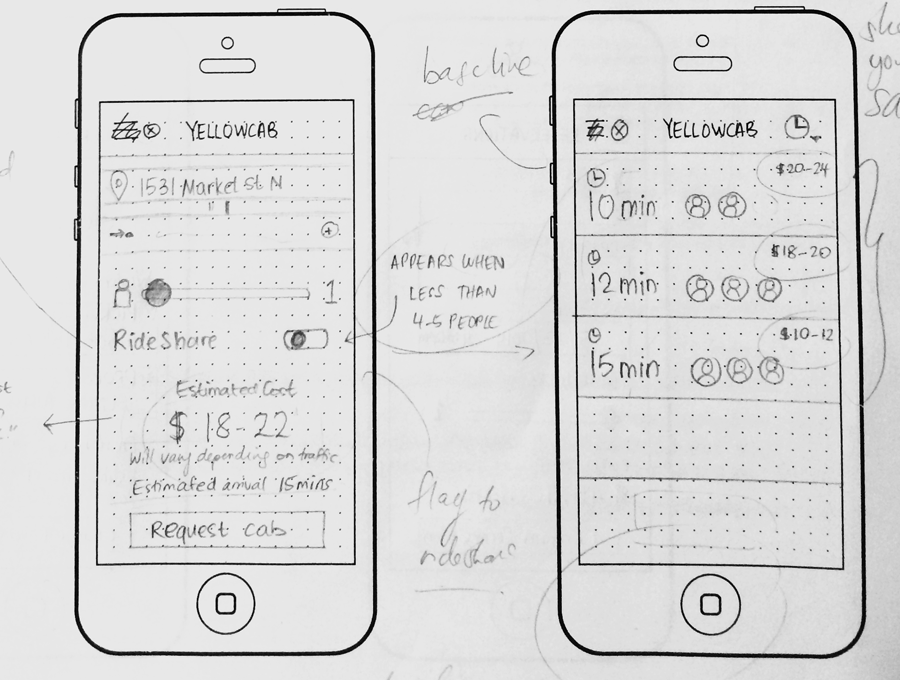 YELLOWCAB
1531 Market St N
" 1
1
RideShare
Estimated Cost
$ 18-22
Will vary depending on traffic.
Estimated arrival 15mins
Request cab
baseline
APPEARS WHEN
LESS THAN
4-5 PEOPLE
flag to
rideshare
YELLOWCAB
$20-24
10 min
$18-20
12 min
$10-12
15 min